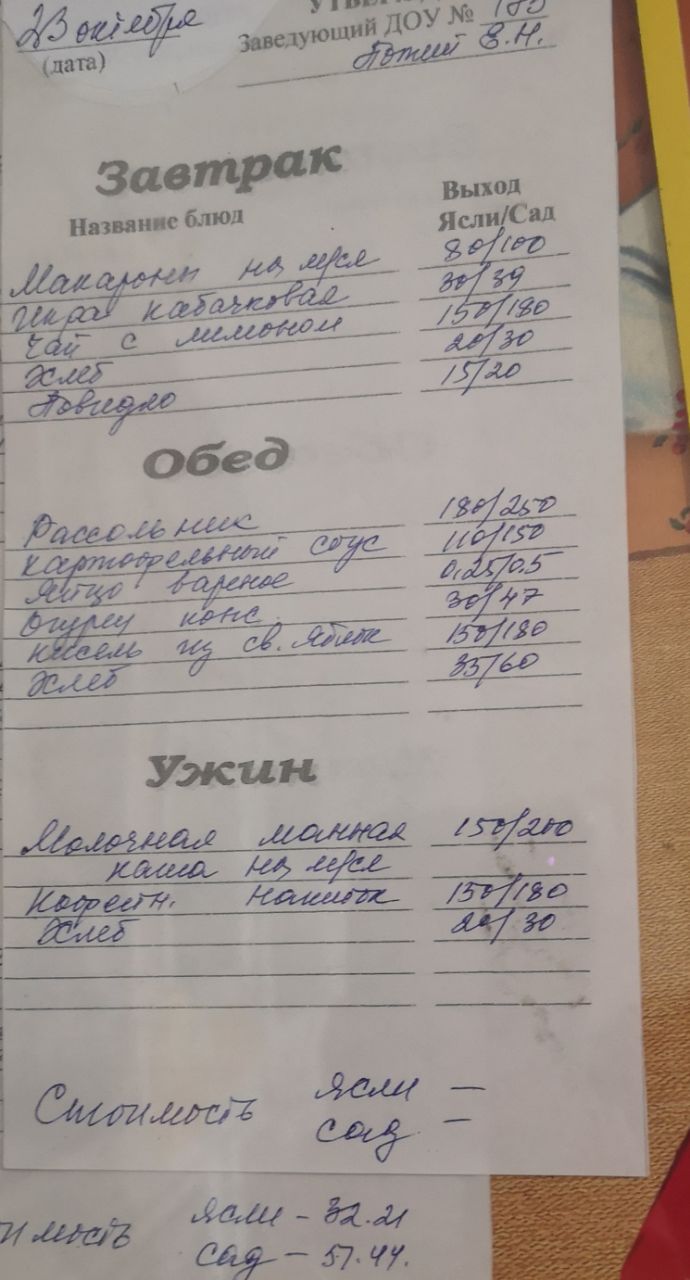 23 октября
(дата)
Заведующий ДОУ №
Е.Н.
Завтрак
Название блюд
Выход
Ясли/Сад
Макароны на м/сл 80/100
Икра кабачковая 30/39
Чай с лимоном 150/180
Хлеб 20/30
Повидло 15/20
Обед
Рассольник 180/250
Картофельный соус 110/150
Яйцо вареное 0,25/0.5
Огурец конс. 30/47
Кисель из св. яблок 150/180
Хлеб 35/60
Ужин
Молочная манная 150/200
каша на м/сл
Кофейн. напиток 150/180
Хлеб 20/30
Стоимость ясли —
сад —
имость ясли – 32.21
сад – 51.44.